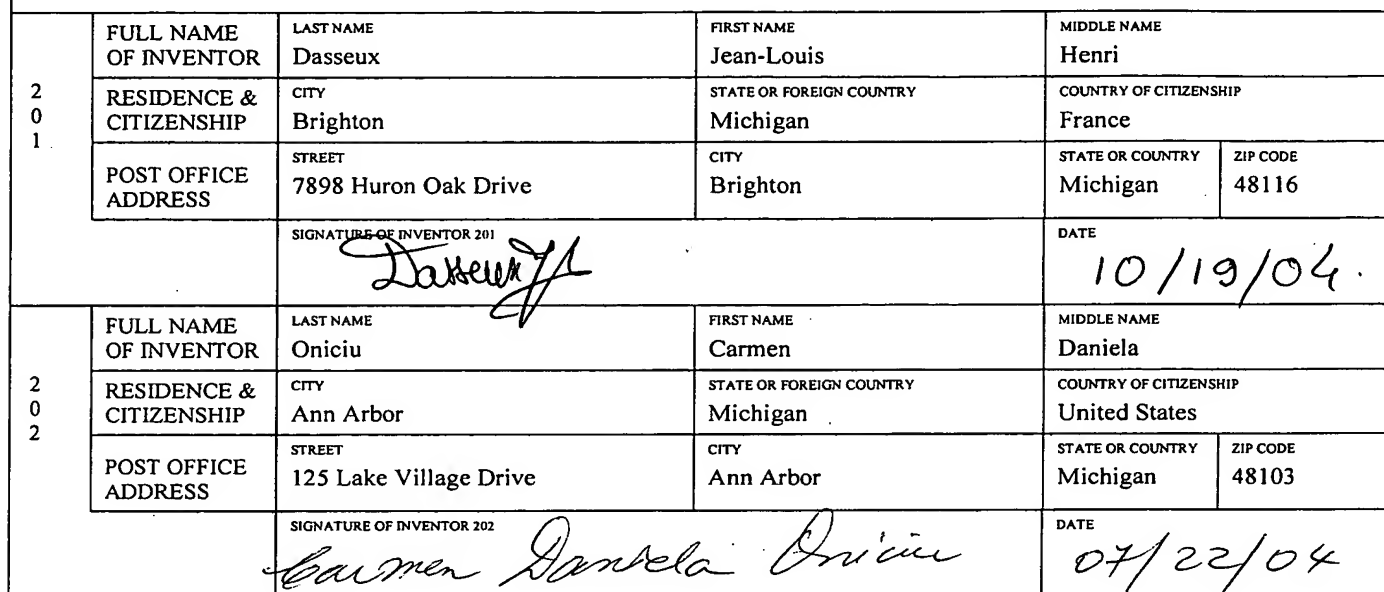 2
0
1
FULL NAME OF INVENTOR
LAST NAME
Dasseux
FIRST NAME
Jean-Louis
MIDDLE NAME
Henri
RESIDENCE & CITIZENSHIP
CITY
Brighton
STATE OR FOREIGN COUNTRY
Michigan
COUNTRY OF CITIZENSHIP
France
POST OFFICE ADDRESS
STREET
7898 Huron Oak Drive
CITY
Brighton
STATE OR COUNTRY
Michigan
ZIP CODE
48116
SIGNATURE OF INVENTOR 201
Dasseux JL
DATE
10/19/04.
2
0
2
FULL NAME OF INVENTOR
LAST NAME
Oniciu
FIRST NAME
Carmen
MIDDLE NAME
Daniela
RESIDENCE & CITIZENSHIP
CITY
Ann Arbor
STATE OR FOREIGN COUNTRY
Michigan
COUNTRY OF CITIZENSHIP
United States
POST OFFICE ADDRESS
STREET
125 Lake Village Drive
CITY
Ann Arbor
STATE OR COUNTRY
Michigan
ZIP CODE
48103
SIGNATURE OF INVENTOR 202
Carmen Daniela Oniciu
DATE
07/22/04